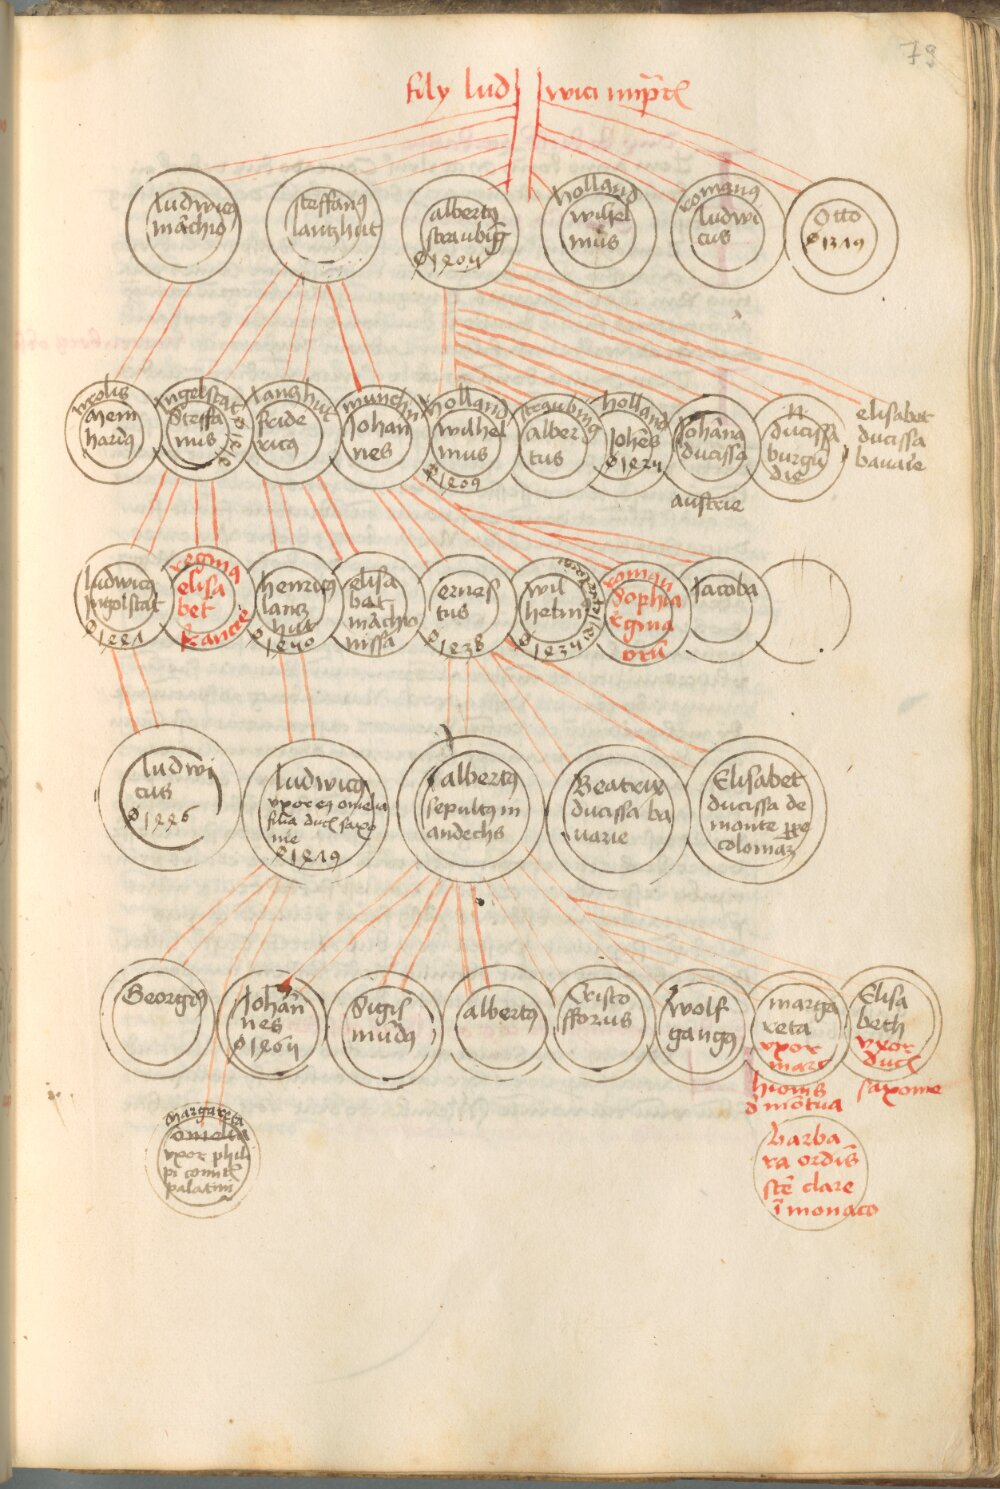 79
filij lud wici imp̄r̄
ludwicꝰ
mārchio
steffanꝰ
lantzhut
albertꝰ
straubīg
1404
holland
wilhel
mus
romanꝰ
ludwi
cus
Otto
1379
tirolis
mein
hardꝰ
Ingelstat
Steffa
nus
1413
lantzhut
fride
ricus
munchn
Johan
nes
holland
wilhel
mus
straubing
alber
tus
holland
Johēs
Johāna
ducissa
austrie
ducissa
burgū
die
elisabet
ducissa
bauarie
ludwicꝰ
ingolstat
regina
elisa
bet
francie
henricꝰ
lantz
hut
elisa
bet
mārchio
nissa
ernes
tus
1438
wil
helmꝰ
roman
Sophia
regina
Jacoba
ludwi
cus
ludwicꝰ
vxor eꝰ omelia
filia ducis saxo
nie
albertꝰ
sepultꝰ in
andechs
Beatrix
ducissa ba
uarie
Elisabet
ducissa de
monte
Georgiꝰ
Johān
nes
Sigis
mūdꝰ
albertꝰ
Cristo
fforus
wolf
gangꝰ
marga
reta
vxor
marc
hionis
d mātua
Elisa
beth
vxor
ducis
saxonie
Margareta
omelia
vxor phili
pi comitis
palatini
barba
ra ordīs
stē clare
ī monaco